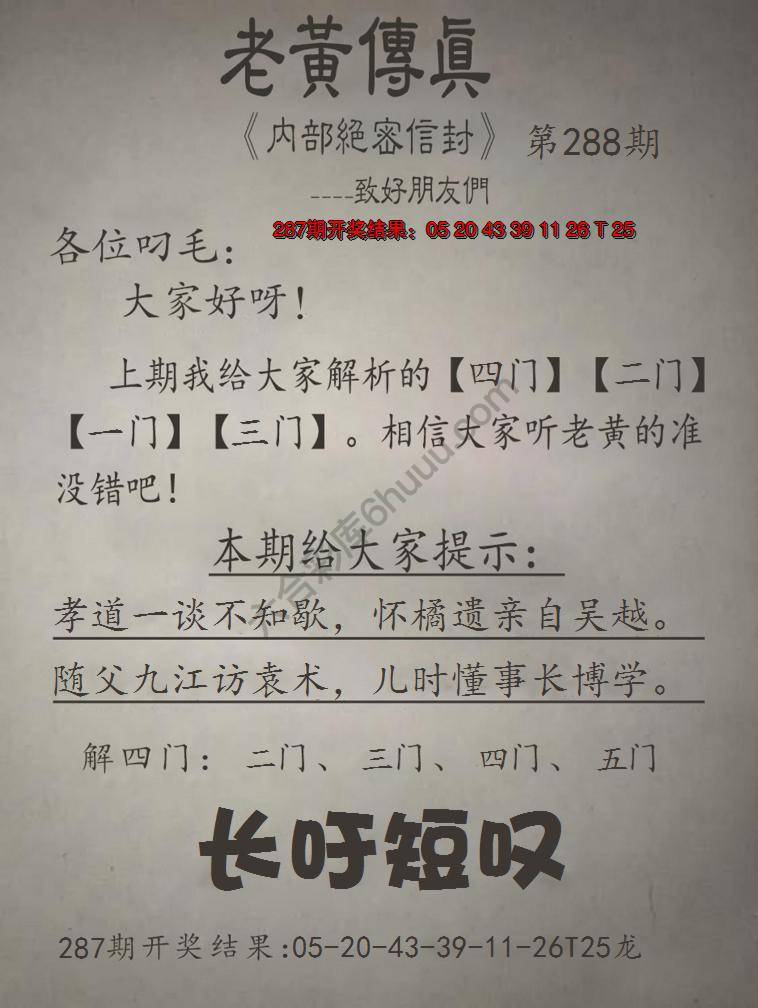 老黃傳眞
《内部絕密信封》 第288期
----致好朋友們
287期开奖结果：05 20 43 39 11 26 T 25
各位叼毛：
大家好呀！
上期我给大家解析的【四门】【二门】
【一门】【三门】。相信大家听老黄的准
没错吧！
本期给大家提示：
孝道一谈不知歇，怀橘遗亲自吴越。
随父九江访袁术，儿时懂事长博学。
解四门： 二门、 三门、 四门、 五门
长吁短叹
287期开奖结果:05-20-43-39-11-26T25龙
六合彩库6huuu.com